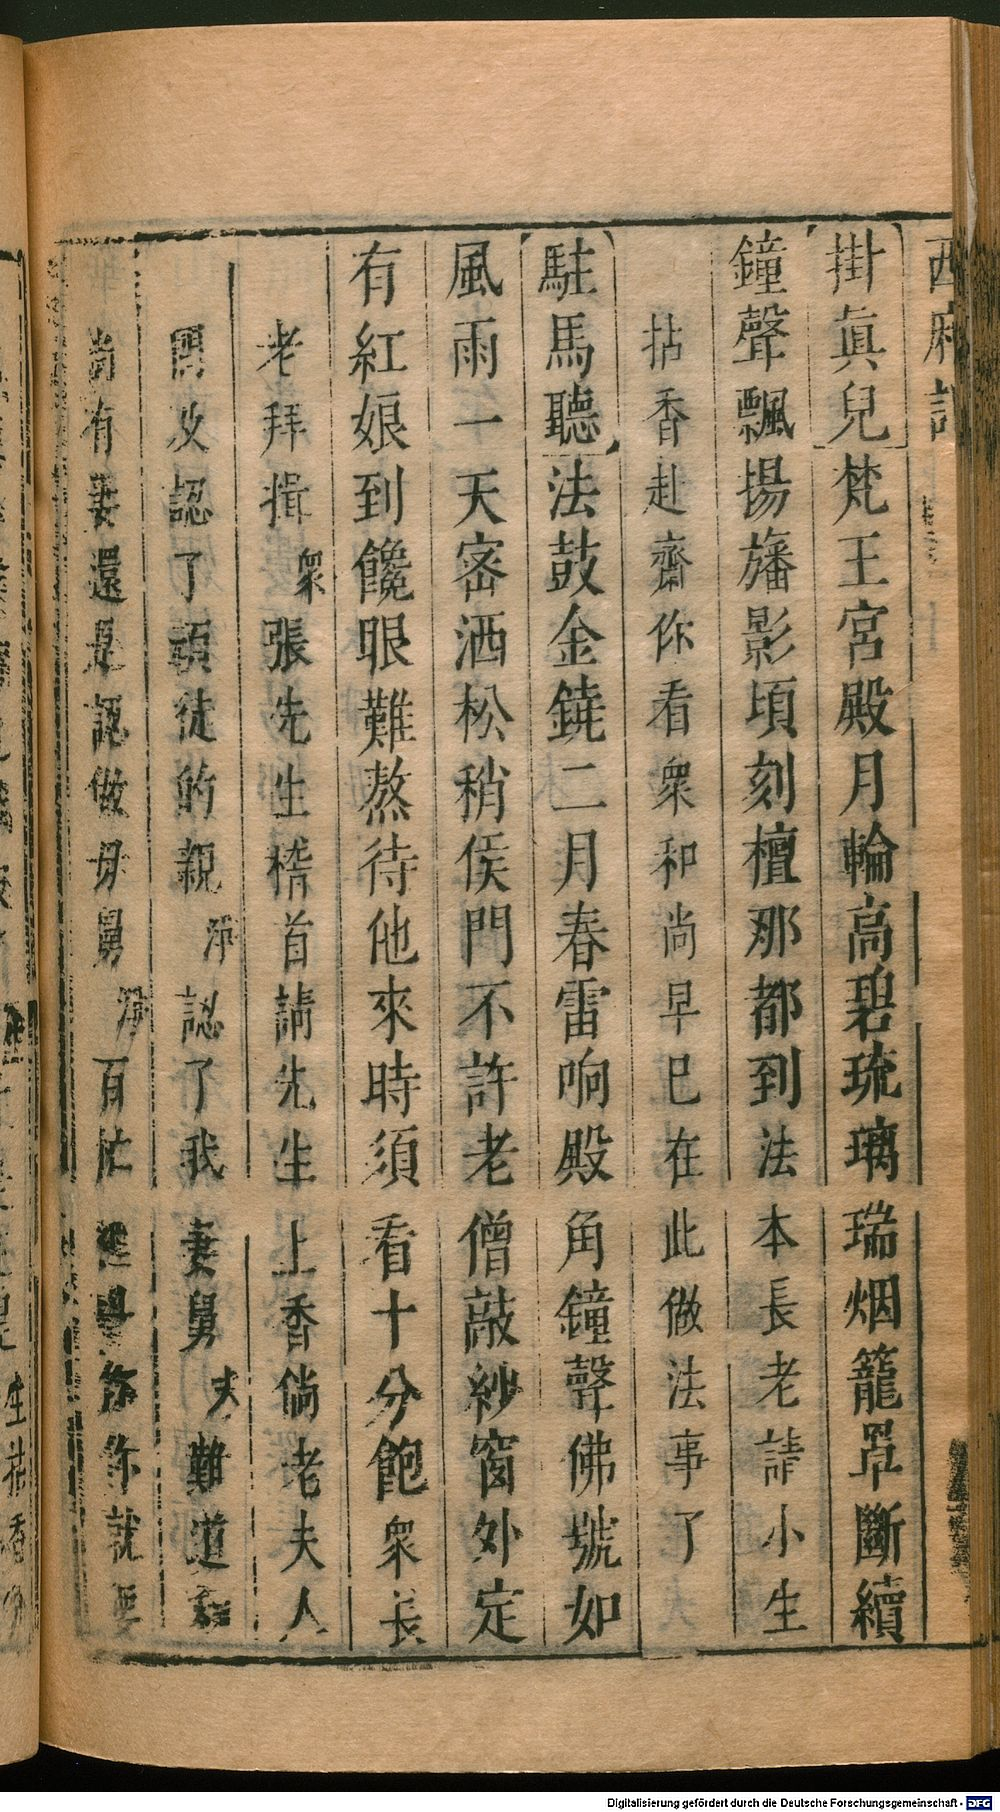 西廂記
掛真兒梵王宮殿月輪高碧琉璃瑞烟籠罩斷續
鐘聲飄揚旛影頃刻檀那都到法本長老請小生
拈香赴齋你看衆和尚早已在此做法事了
駐馬聽法鼓金鐃二月春雷响殿角鐘聲佛號如
風雨一天密洒松稍侯門不許老僧敲紗窗外定
有紅娘到饞眼難熬待他來時須看十分飽衆長
老拜揖衆張先生稽首請先生上香倘老夫人
問及認了頭徒的親淨認了我妻舅末難道和
尚有妻還是認做母舅淨百忙裡畧你你就要
生花香分
Digitalisierung gefördert durch die Deutsche Forschungsgemeinschaft - DFG